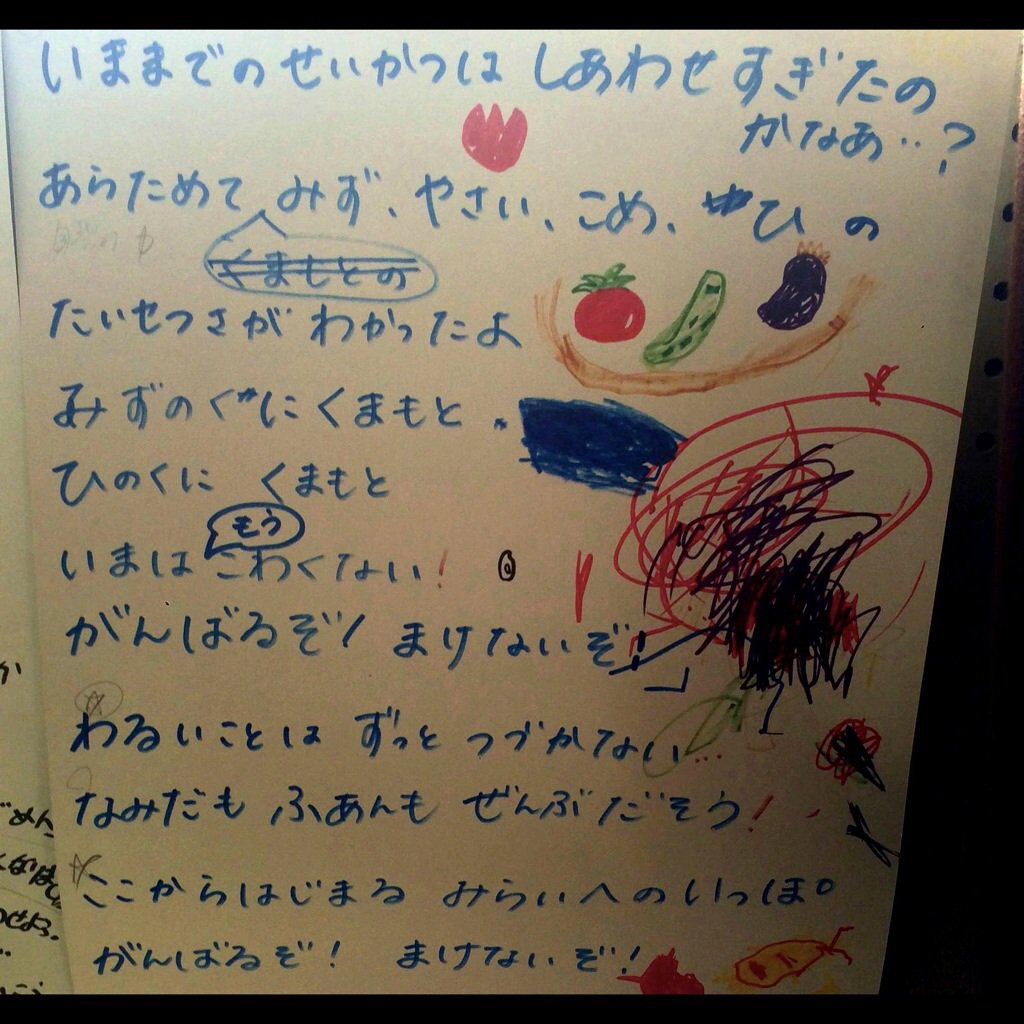 いままでのせいかつは しあわせすぎたの
かなあ‥?
あらためて みず、やさい、こめ、ひ の
くまもとの
たいせつさが わかったよ
みずのくに くまもと
ひのくに くまもと
もう
いまは こわくない!
がんばるぞ! まけないぞ!
わるいことは ずっと つづかない…
なみだも ふあんも ぜんぶださそう!
ここからはじまる みらいへのいっぽ。
がんばるぞ! まけないぞ!